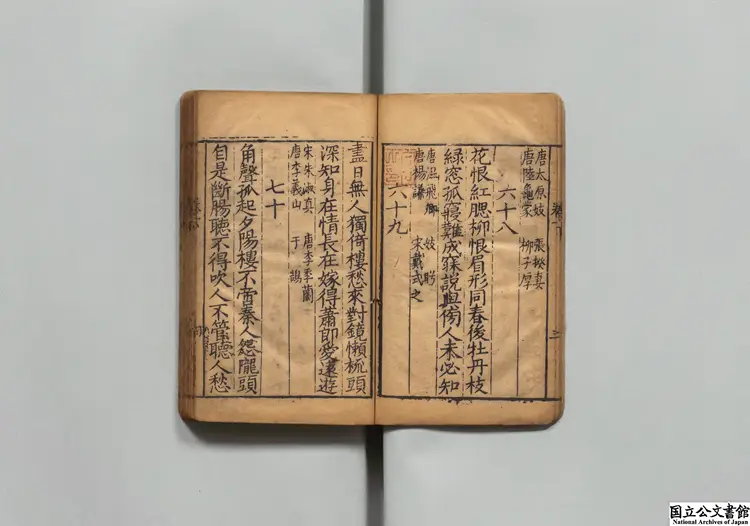 唐太原妓 張揆妻
唐陸龜蒙 柳子厚
六十八
花恨紅腮柳恨眉形同春後牡丹枝
綠窓孤寢難成寐說與傍人未必知
唐温飛卿 妓盼
唐楊 宋戴式之
六十九
盡日無人獨倚樓愁來對鏡懶梳頭
深知身在情長在嫁得蕭郎愛遠遊
宋朱淑真 唐李季蘭
唐李義山 于鵠
七十
角聲孤起夕陽樓不啻秦人怨隴頭
自是斷腸聽不得吹人不管聽人愁
国立公文書館
National Archives of Japan